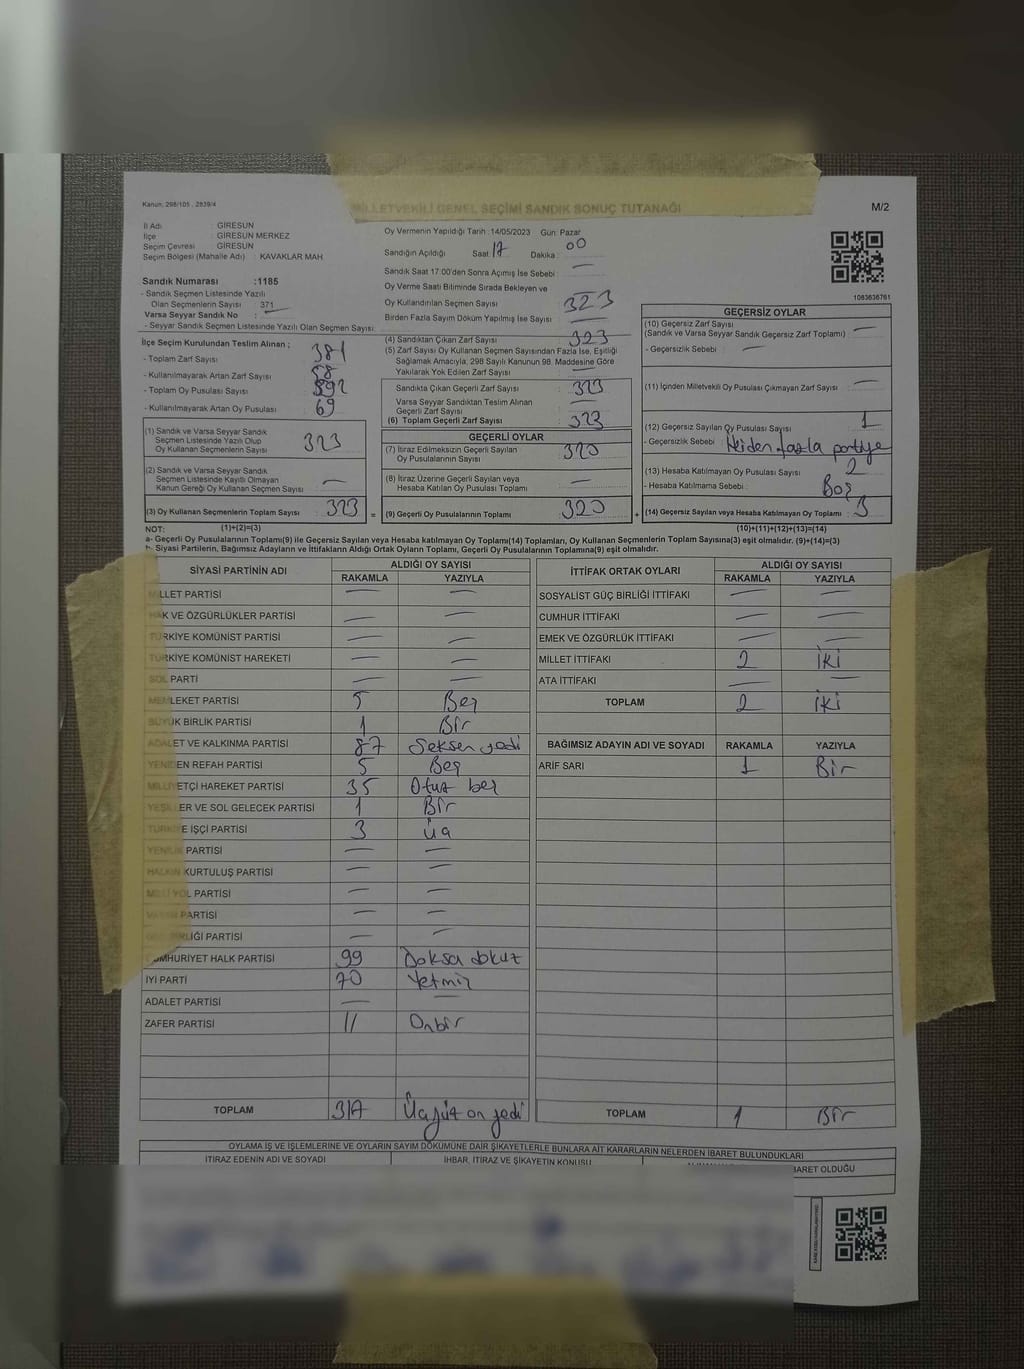 Kanun: 298/105 , 2839/4
MİLLETVEKİLİ GENEL SEÇİMİ SANDIK SONUÇ TUTANAĞI
M/2
İl Adı : GİRESUN
İlçe : GİRESUN MERKEZ
Seçim Çevresi : GİRESUN
Seçim Bölgesi (Mahalle Adı) : KAVAKLAR MAH
Sandık Numarası :1185
- Sandık Seçmen Listesinde Yazılı
Olan Seçmenlerin Sayısı 371
Varsa Seyyar Sandık No : —
- Seyyar Sandık Seçmen Listesinde Yazılı Olan Seçmen Sayısı:
İlçe Seçim Kurulundan Teslim Alınan ;
- Toplam Zarf Sayısı : 381
- Kullanılmayarak Artan Zarf Sayısı : 58
- Toplam Oy Pusulası Sayısı : 392
- Kullanılmayarak Artan Oy Pusulası : 69
(1) Sandık ve Varsa Seyyar Sandık
Seçmen Listesinde Yazılı Olup
Oy Kullanan Seçmenlerin Sayısı 323
(2) Sandık ve Varsa Seyyar Sandık
Seçmen Listesinde Kayıtlı Olmayan
Kanun Gereği Oy Kullanan Seçmen Sayısı —
(3) Oy Kullanan Seçmenlerin Toplam Sayısı : 323 =
Oy Vermenin Yapıldığı Tarih :14/05/2023 Gün: Pazar
Sandığın Açıldığı Saat 17 Dakika : 00
Sandık Saat 17:00'den Sonra Açımış İse Sebebi : —
Oy Verme Saati Bitiminde Sırada Bekleyen ve
Oy Kullandırılan Seçmen Sayısı : 323
Birden Fazla Sayım Döküm Yapılmış İse Sayısı : —
(4) Sandıktan Çıkan Zarf Sayısı : 323
(5) Zarf Sayısı Oy Kullanan Seçmen Sayısından Fazla İse, Eşitliği
Sağlamak Amacıyla; 298 Sayılı Kanunun 98. Maddesine Göre
Yakılarak Yok Edilen Zarf Sayısı : —
Sandıkta Çıkan Geçerli Zarf Sayısı : 323
Varsa Seyyar Sandıktan Teslim Alınan
Geçerli Zarf Sayısı : —
(6) Toplam Geçerli Zarf Sayısı : 323
GEÇERLİ OYLAR
(7) İtiraz Edilmeksizin Geçerli Sayılan
Oy Pusulalarının Sayısı : 320
(8) İtiraz Üzerine Geçerli Sayılan veya
Hesaba Katılan Oy Pusulası Toplamı : —
(9) Geçerli Oy Pusulalarının Toplamı : 320 +
1083636761
GEÇERSİZ OYLAR
(10) Geçersiz Zarf Sayısı
(Sandık ve Varsa Seyyar Sandık Geçersiz Zarf Toplamı) : —
- Geçersizlik Sebebi : —
(11) İçinden Milletvekili Oy Pusulası Çıkmayan Zarf Sayısı : —
(12) Geçersiz Sayılan Oy Pusulası Sayısı : 1
- Geçersizlik Sebebi : ikiden fazla partiye
(13) Hesaba Katılmayan Oy Pusulası Sayısı : 2
- Hesaba Katılmama Sebebi : Boş
(14) Geçersiz Sayılan veya Hesaba Katılmayan Oy Toplamı : 3
NOT: (1)+(2)=(3) (10)+(11)+(12)+(13)=(14)
a- Geçerli Oy Pusulalarının Toplamı(9) ile Geçersiz Sayılan veya Hesaba Katılmayan Oy Toplamı(14) Toplamları, Oy Kullanan Seçmenlerin Toplam Sayısına(3) eşit olmalıdır. (9)+(14)=(3)
b- Siyasi Partilerin, Bağımsız Adayların ve İttifakların Aldığı Ortak Oyların Toplamı, Geçerli Oy Pusulalarının Toplamına(9) eşit olmalıdır.
SİYASİ PARTİNİN ADI ALDIĞI OY SAYISI
RAKAMLA YAZIYLA
MİLLET PARTİSİ — —
HAK VE ÖZGÜRLÜKLER PARTİSİ — —
TÜRKİYE KOMÜNİST PARTİSİ — —
TÜRKİYE KOMÜNİST HAREKETİ — —
SOL PARTİ — —
MEMLEKET PARTİSİ 5 Beş
BÜYÜK BİRLİK PARTİSİ 1 Bir
ADALET VE KALKINMA PARTİSİ 87 Seksen yedi
YENİDEN REFAH PARTİSİ 5 Beş
MİLLİYETÇİ HAREKET PARTİSİ 35 Otuz beş
YEŞİLLER VE SOL GELECEK PARTİSİ 1 Bir
TÜRKİYE İŞÇİ PARTİSİ 3 Üç
YENİLİK PARTİSİ — —
HALKIN KURTULUŞ PARTİSİ — —
MİLLİ YOL PARTİSİ — —
VATAN PARTİSİ — —
GÜÇ BİRLİĞİ PARTİSİ — —
CUMHURİYET HALK PARTİSİ 99 Doksa dokuz
İYİ PARTİ 70 Yetmiş
ADALET PARTİSİ — —
ZAFER PARTİSİ 11 Onbir
TOPLAM 317 Üçyüz on yedi
İTTİFAK ORTAK OYLARI ALDIĞI OY SAYISI
RAKAMLA YAZIYLA
SOSYALİST GÜÇ BİRLİĞİ İTTİFAKI — —
CUMHUR İTTİFAKI — —
EMEK VE ÖZGÜRLÜK İTTİFAKI — —
MİLLET İTTİFAKI 2 İki
ATA İTTİFAKI — —
TOPLAM 2 İki
BAĞIMSIZ ADAYIN ADI VE SOYADI RAKAMLA YAZIYLA
ARİF SARI 1 Bir
TOPLAM 1 Bir
OYLAMA İŞ VE İŞLEMLERİNE VE OYLARIN SAYIM DÖKÜMÜNE DAİR ŞİKAYETLERLE BUNLARA AİT KARARLARIN NELERDEN İBARET BULUNDUKLARI
İTİRAZ EDENİN ADI VE SOYADI İHBAR, İTİRAZ VE ŞİKAYETİN KONUSU BARET OLDUĞU